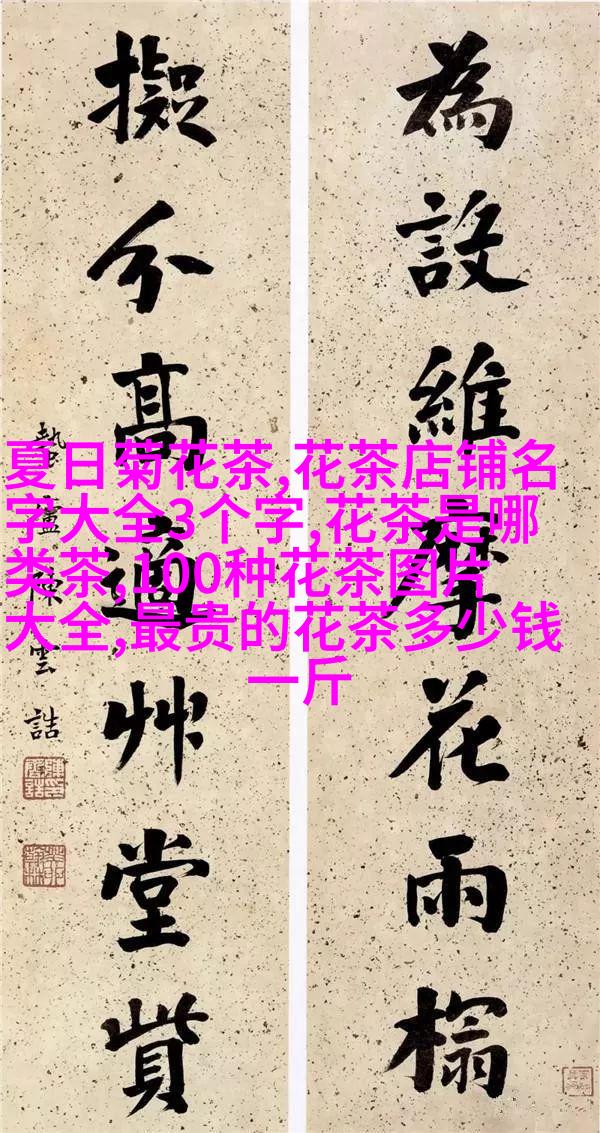 為設維摩花雨榻
擬分高適艸堂貲
蟄廬陳雲誥
夏日菊花茶,花茶店铺名
字大全3个字,花茶是哪
类茶,100种花茶图片
大全,最贵的花茶多少钱
一斤